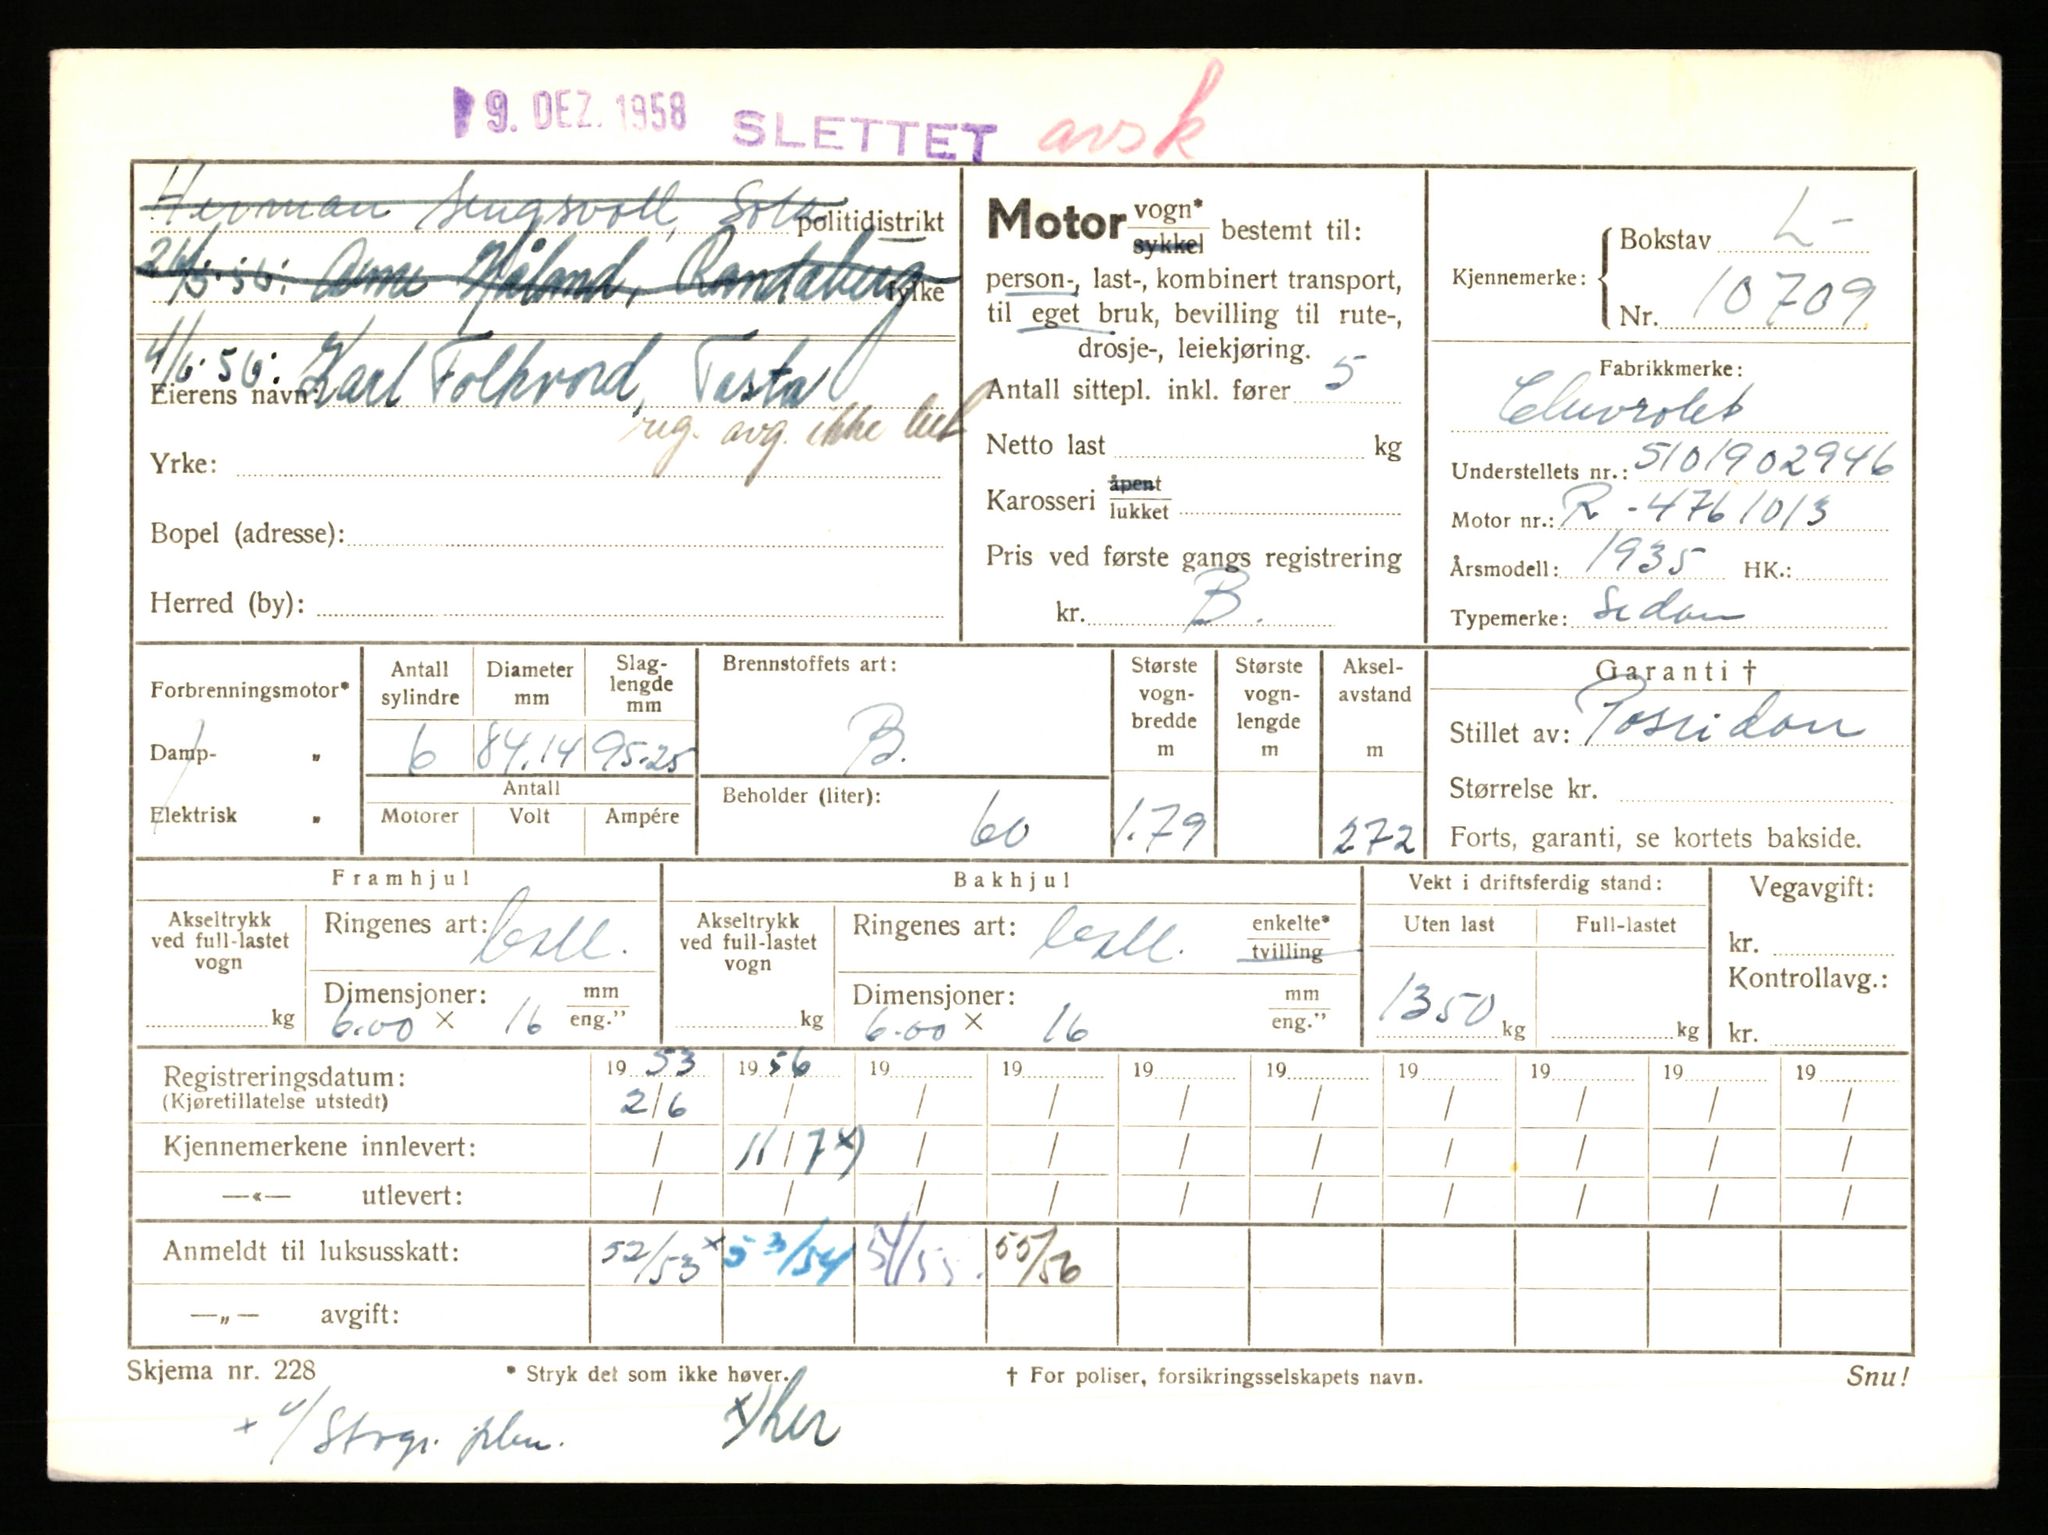 9. DEZ. 1958 SLETTET avsk
Herman Sengsvoll, Sola politidistrikt
Arne Håland, Randaberg fylke
4/6.56: Karl Folkvord, Tasta
Eierens navn:
reg. avg. ikke bet
Yrke:
Bopel (adresse):
Herred (by):
Motor vogn* / sykkel bestemt til:
person-, last-, kombinert transport,
til eget bruk, bevilling til rute-,
drosje-, leiekjøring.
Antall sittepl. inkl. fører 5
Netto last kg
Karosseri åpent / lukket
Pris ved første gangs registrering
kr. B.
Kjennemerke: Bokstav L-
Nr. 10709
Fabrikkmerke:
Chevrolet
Understellets nr.: 5101902946
Motor nr.: R-4761013
Årsmodell: 1935 HK.:
Typemerke: Sedan
Forbrenningsmotor*
Damp- „
Elektrisk „
Antall sylindre 6
Diameter mm 84.14
Slag-lengde mm 95.25
Antall
Motorer Volt Ampére
Brennstoffets art:
B.
Beholder (liter): 60
Største vogn-bredde m 1.79
Største vogn-lengde m
Aksel-avstand m 272
Garanti †
Stillet av: Poseidon
Størrelse kr.
Forts, garanti, se kortets bakside.
Framhjul
Akseltrykk ved full-lastet vogn kg
Ringenes art: ball.
Dimensjoner: mm / eng.”
6.00 × 16
Bakhjul
Akseltrykk ved full-lastet vogn kg
Ringenes art: ball. enkelte* / tvilling
Dimensjoner: mm / eng.”
6.00 × 16
Vekt i driftsferdig stand:
Uten last Full-lastet
1350 kg kg
Vegavgift:
kr.
Kontrollavg.:
kr.
Registreringsdatum: 19 53 19 56 19 19 19 19 19 19 19 19
(Kjøretillatelse utstedt) 2/6 / / / / / / / / /
Kjennemerkene innlevert: / 11/7 x) / / / / / / / /
—«— utlevert: / / / / / / / / / /
Anmeldt til luksusskatt: 52/53 x 53/54 54/55. 55/56
—„— avgift:
Skjema nr. 228 * Stryk det som ikke høver. † For poliser, forsikringsselskapets navn. Snu!
x)her